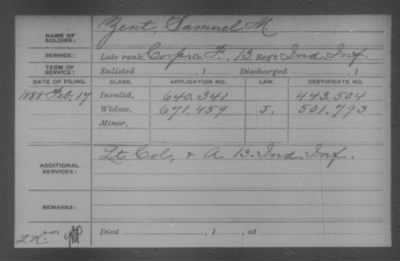 NAME OF SOLDIER: Zent, Samuel M
SERVICE: Late rank, Corp Co. F., 13 Reg't Ind Inf.
TERM OF SERVICE: Enlisted , 1 Discharged , 1
DATE OF FILING. CLASS. APPLICATION NO. LAW. CERTIFICATE NO.
1888 Feb. 17 Invalid, 640.341 443.504
Widow, 671.459 J. 501.793
Minor,
ADDITIONAL SERVICES: Lt Col, & A 13 Ind. Inf.
REMARKS:
Died , 1 , at